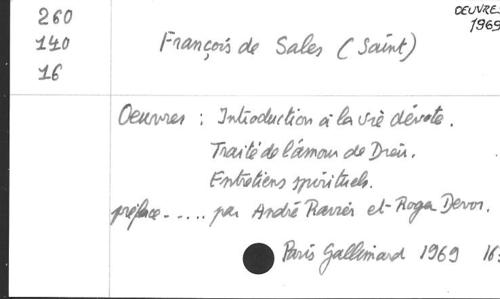 260
140
16
OEUVRES
1969
François de Sales (Saint)
Oeuvres : Introduction à la vie dévote.
Traité de l'amour de Dieu.
Entretiens spirituels.
préface ..... par André Ravier et Roger Devos.
Paris Gallimard 1969 16